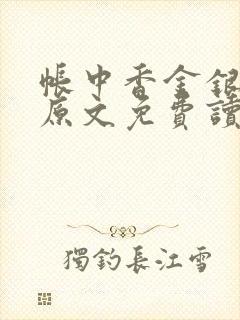 帳中香金銀
原文免費讀
獨釣長江雪